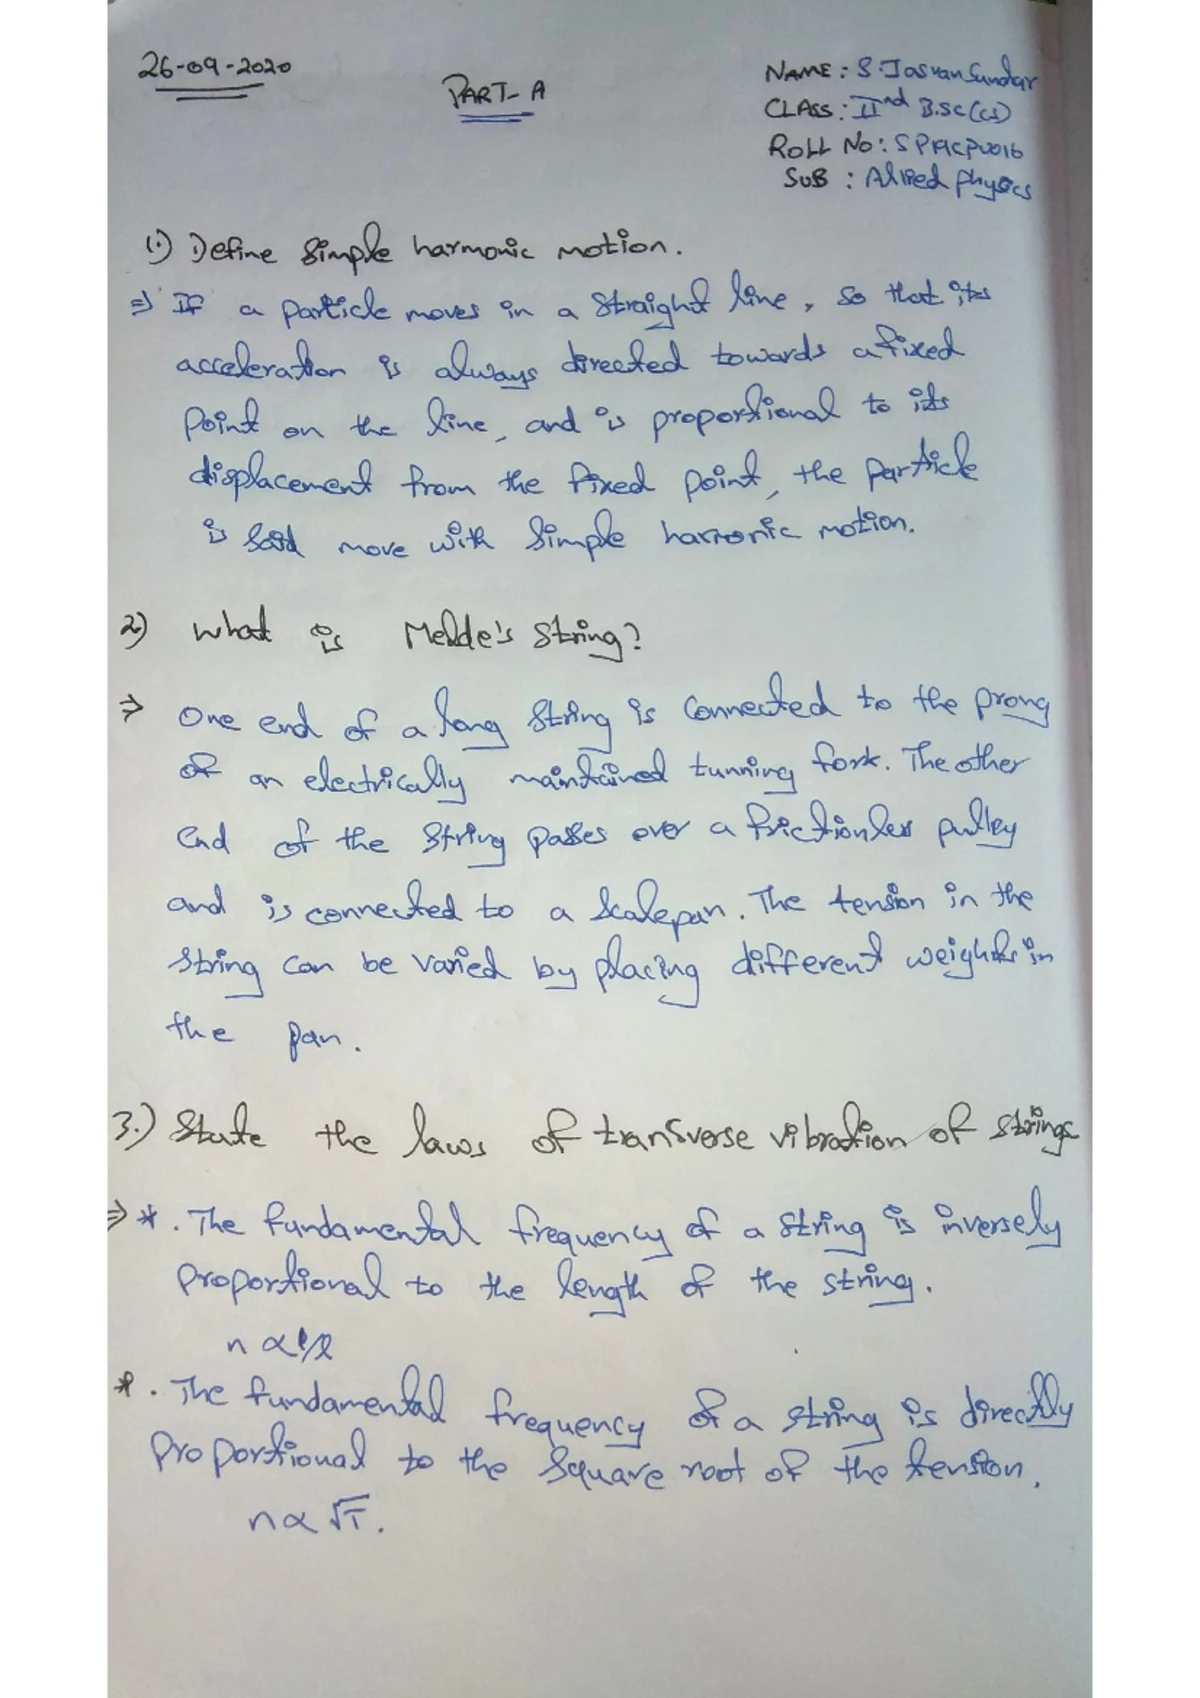 26-09-2020
PART-A
NAME : S. Jasvan Sundar
CLASS : IInd B.Sc (CS)
ROLL No :
SUB : Allied physics
1.) Define Simple harmonic motion.
=) If a particle moves in a straight line, so that its
acceleration is always directed towards a fixed
Point on the line, and is proportional to its
displacement from the fixed point, the particle
is said move with simple harmonic motion.
2) What is Melde's String?
=> One end of a long string is connected to the prong
of an electrically maintained tunning fork. The other
end of the string passes over a frictionless pulley
and is connected to a scalepan. The tension in the
string can be varied by placing different weights in
the pan.
3.) State the laws of transverse vibration of strings
=> *. The fundamental frequency of a string is inversely
proportional to the length of the string.
n ∝ 1/l
*. The fundamental frequency of a string is directly
proportional to the square root of the tension.
n ∝ √T.